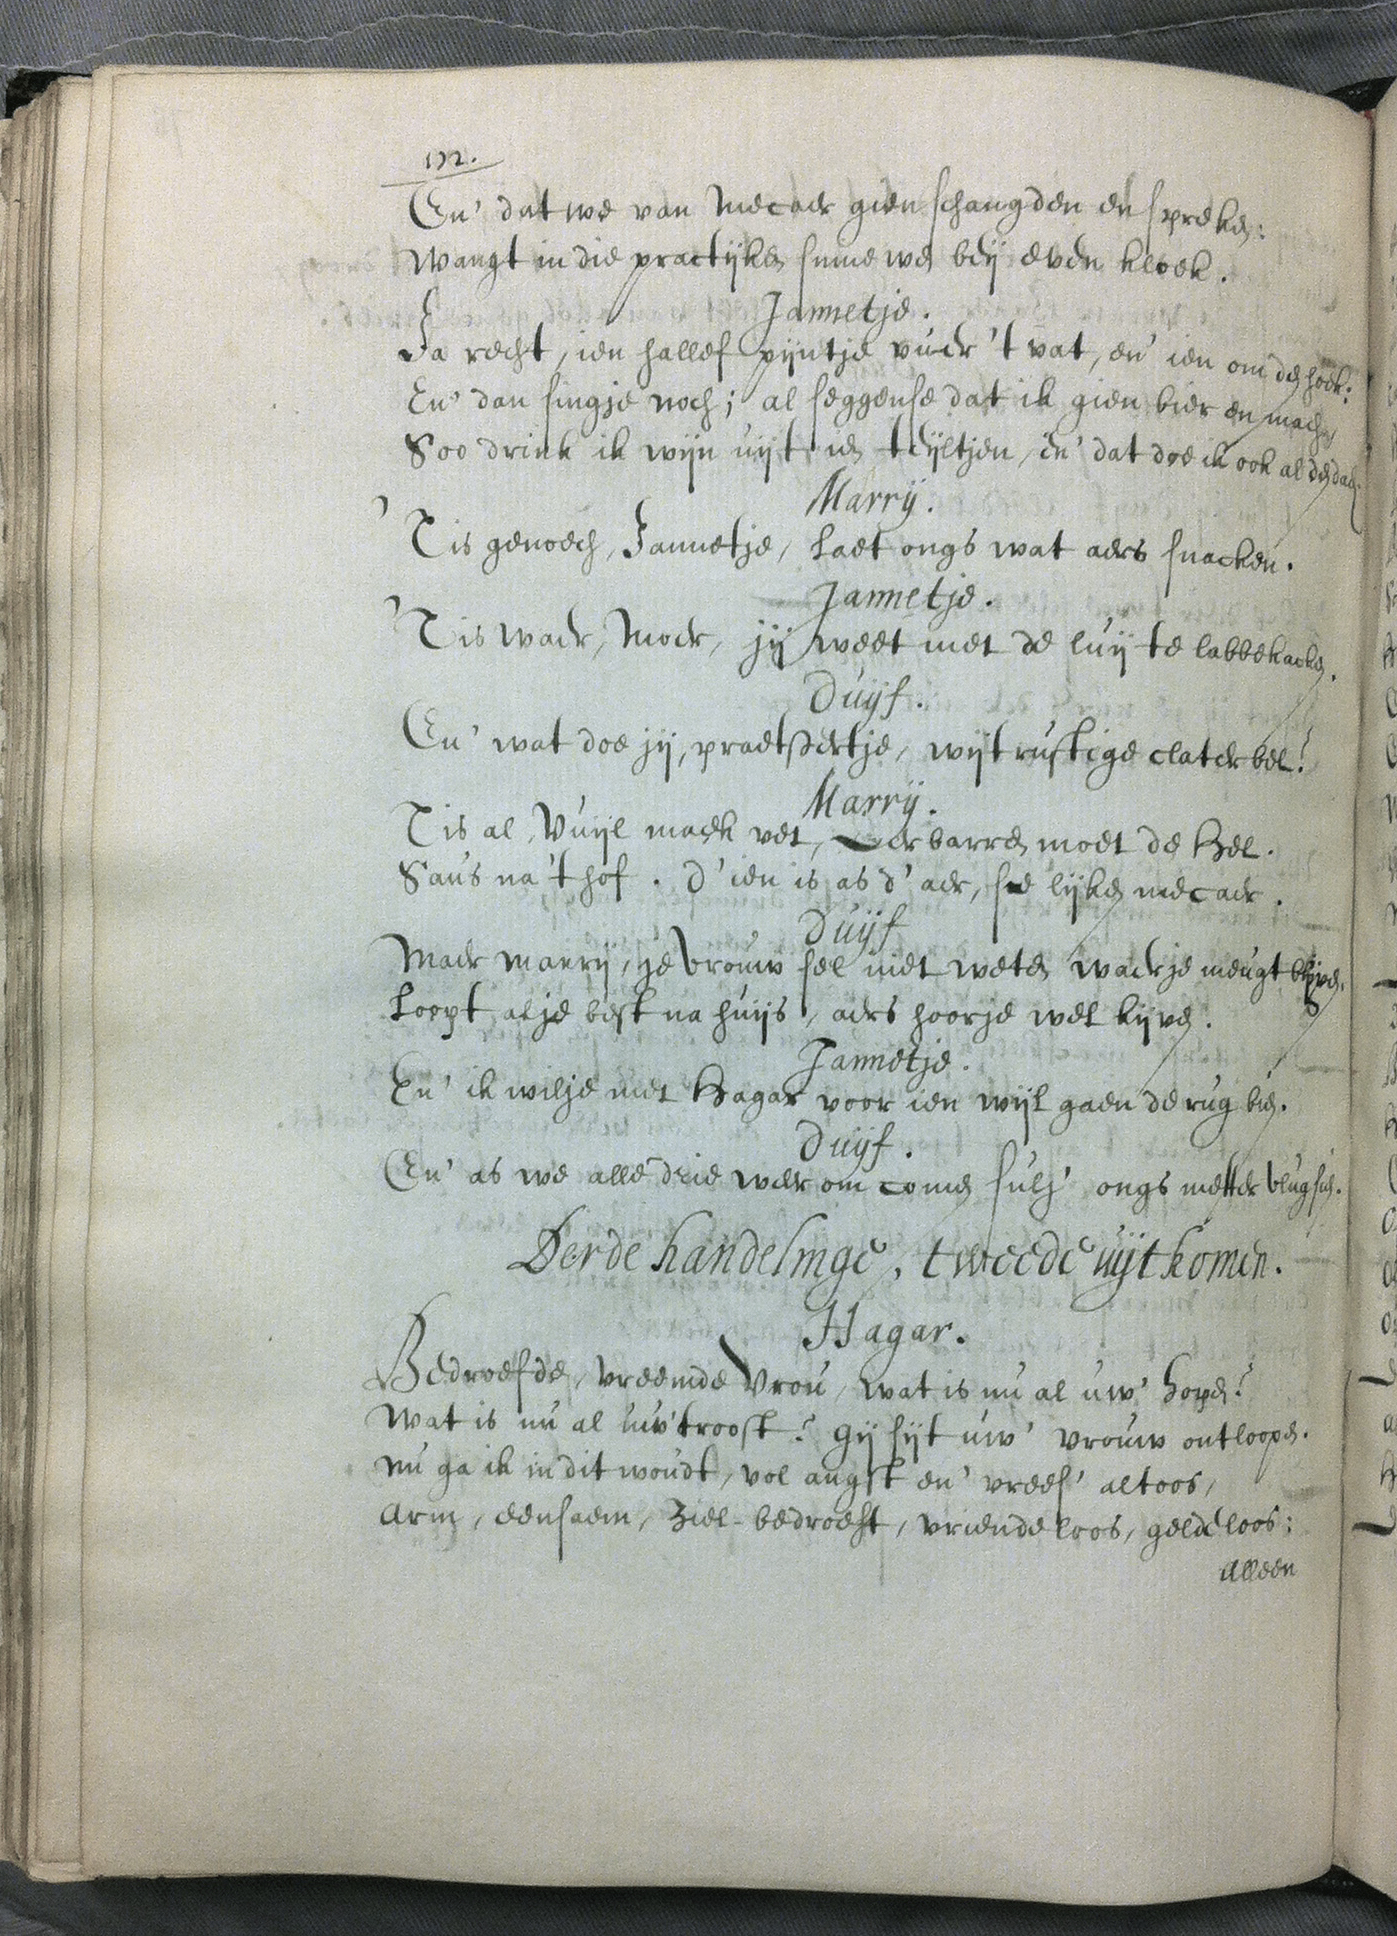 172.
En' dat we van mecaer gien schangden en spreken:
Wangt in die practijken sinne we bey even kloek.
Jannetje.
Ja recht, ien hallef pijntje vuer 't vat, en' ien om den hoek:
En' dan singje noch; al seggense dat ik gien bier en mach,
Soo drink ik wijn uijt ien teyltjen, en' dat doe ik ook al den dach.
Marrij.
'Tis genoech, Jannetje, laet ongs wat aers snacken.
Jannetje.
'Tis waer, Moer, jij weet met de luij te labbekacken.
Duijf.
En' wat doe jij, praetstertje, wijtruftige claterbel?
Marrij.
Tis al vuijl maek vet, barren moet de Hel.
Saus na 't hof. D'ien is as d'aer, se lijken mecaer.
Duijf
Maer marrij, je vrouw sel niet weten waer je meugt blijven.
Loopt al je best na huijs, aers hoorje wel kijven.
Jannetje.
En' ik wilje met Hagar voor ien wijl gaen de rug bien.
Duijf.
En' as we alle drie weerom comen sulj' ongs metter vlug sien.
Derde handelinge, tweede uijtkomen.
Hagar.
Bedroefde, vreemde vrou, wat is nu al uw' hopen?
Wat is nu al uw' troost? Gij sijt uw' vrouw ontloopen.
Nu ga ik in dit woudt, vol angst en' vrees' altoos,
Arm, eensaem, ziel-bedroeft, vriendeloos, geldeloos:
Alleen